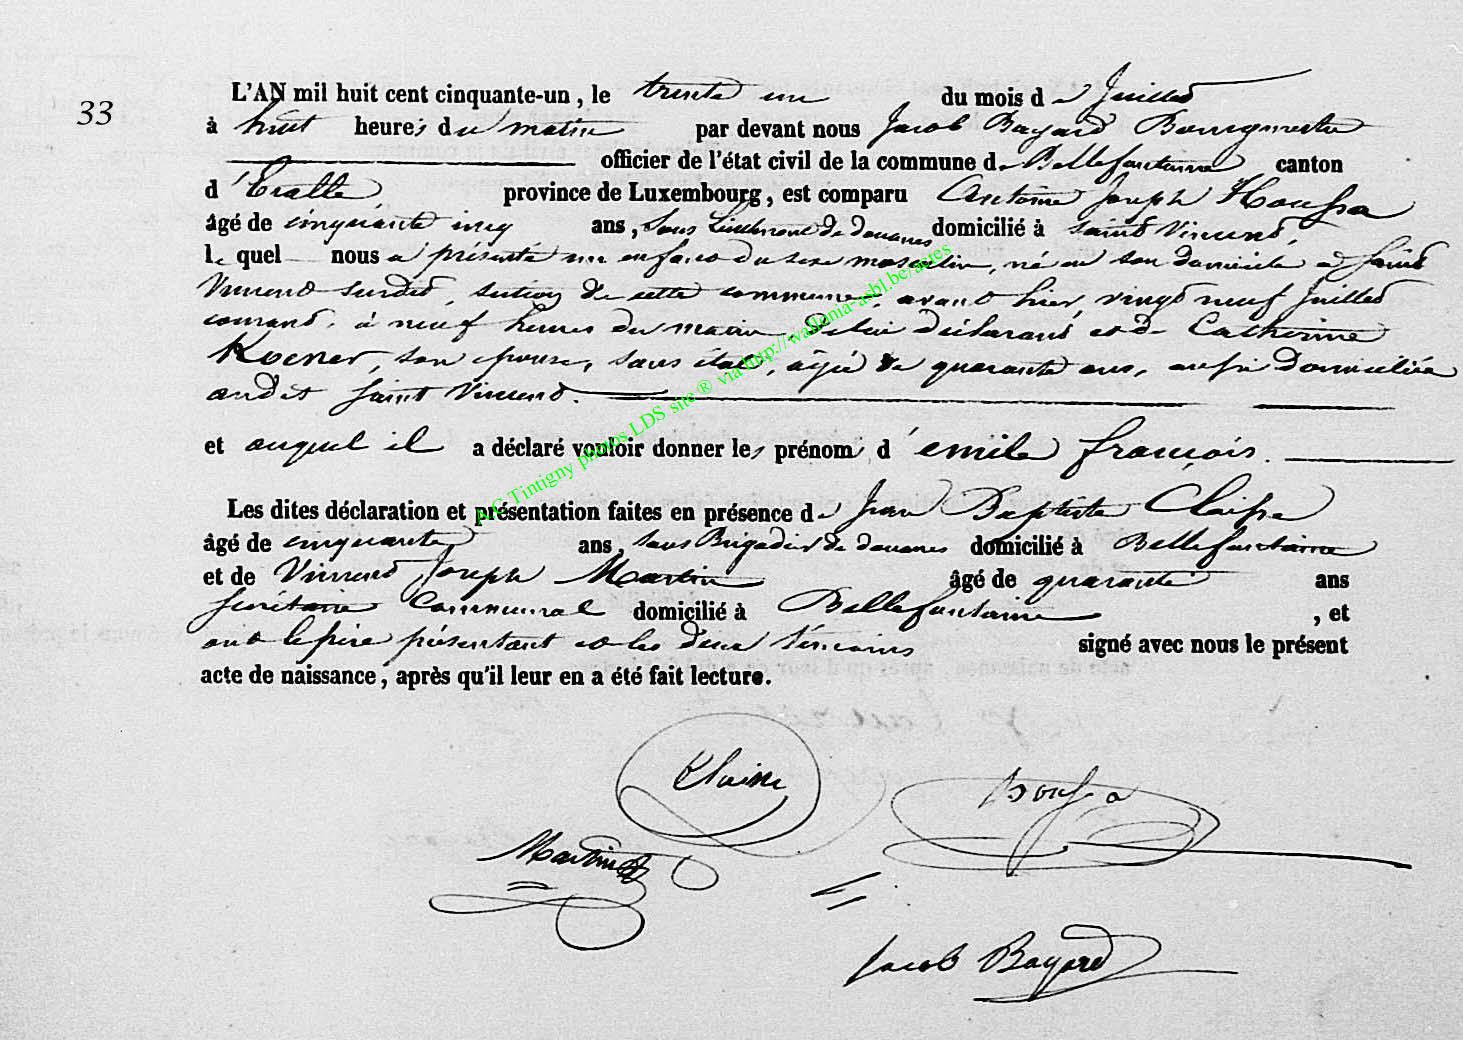 33
L'AN mil huit cent cinquante-un, le trente un du mois de Juillet
à huit heures du matin par devant nous Jacob Bayard Bourgmestre
officier de l'état civil de la commune de Bellefontaine canton
d'Etalle province de Luxembourg, est comparu Antoine Joseph Houssa
âgé de cinquante cinq ans, Sous Lieutenant de douanes domicilié à Saint Vincent,
lequel nous a présenté un enfant du sexe masculin, né en son domicile à Saint
Vincent susdit, section de cette commune, avant hier, vingt neuf Juillet
courant, à neuf heures du matin, de lui déclarant et de Catherine
Koener, son épouse, sans état, âgée de quarante ans, aussi domiciliée
audit Saint Vincent.
et auquel il a déclaré vouloir donner les prénom d'emile françois.
Les dites déclaration et présentation faites en présence de Jean Baptiste Claisse
âgé de cinquante ans, sous Brigadier de douanes domicilié à Bellefontaine
et de Vincent Joseph Martin âgé de quarante ans
Secrétaire Communal domicilié à Bellefontaine, et
ont le père présentant et les deux témoins signé avec nous le présent
acte de naissance, après qu'il leur en a été fait lecture.
Houssa
Jacob Bayard
A.C Tintigny photos LDS site ® via http://wallonia-asbl.be/actes